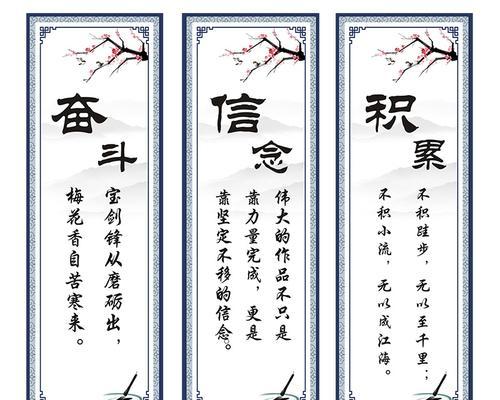 奋斗
宝剑锋从磨砺出，
梅花香自苦寒来。
信念
伟大的作品不只是
靠力量完成，更是
靠坚定不移的信念。
积累
不积跬步，无以至千里；
不积小流，无以成江海。